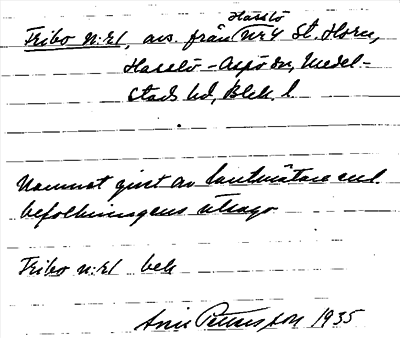 Hasslö
Fribo n:r 1, avs. från nr 4 St. Horn,
Hasslö-Aspö sn, Medel-
stads hd, Blek. l
Namnet givet av lantmätare enl.
befolkningens utsago
Fribo n:r 1 beb
1935